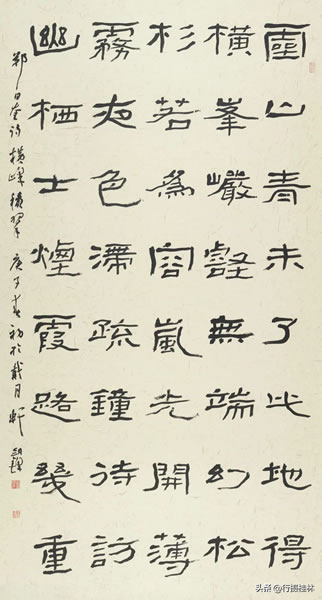 靈山青未了此地得
橫峯巖壑無端幻松
杉若為容嵐光開薄
霧夜色滯疏鐘待訪
幽栖士煙霞路幾重
鄭日奎詩橫峰積翠庚子春初於月軒
头条 @行摄桂林